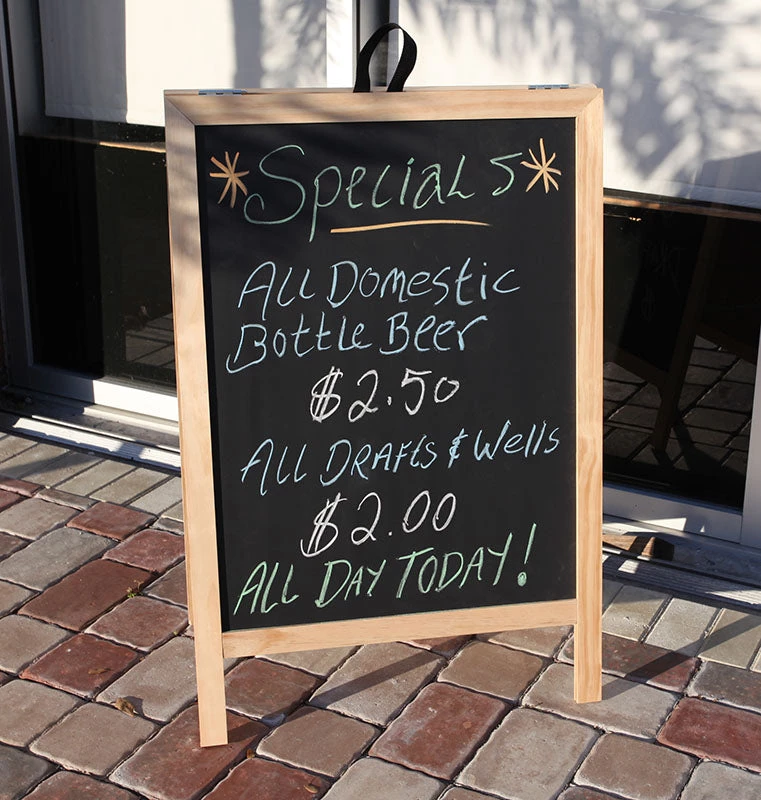 * Specials *
All Domestic
Bottle Beer
$2.50
All Drafts & Wells
$2.00
All Day Today!